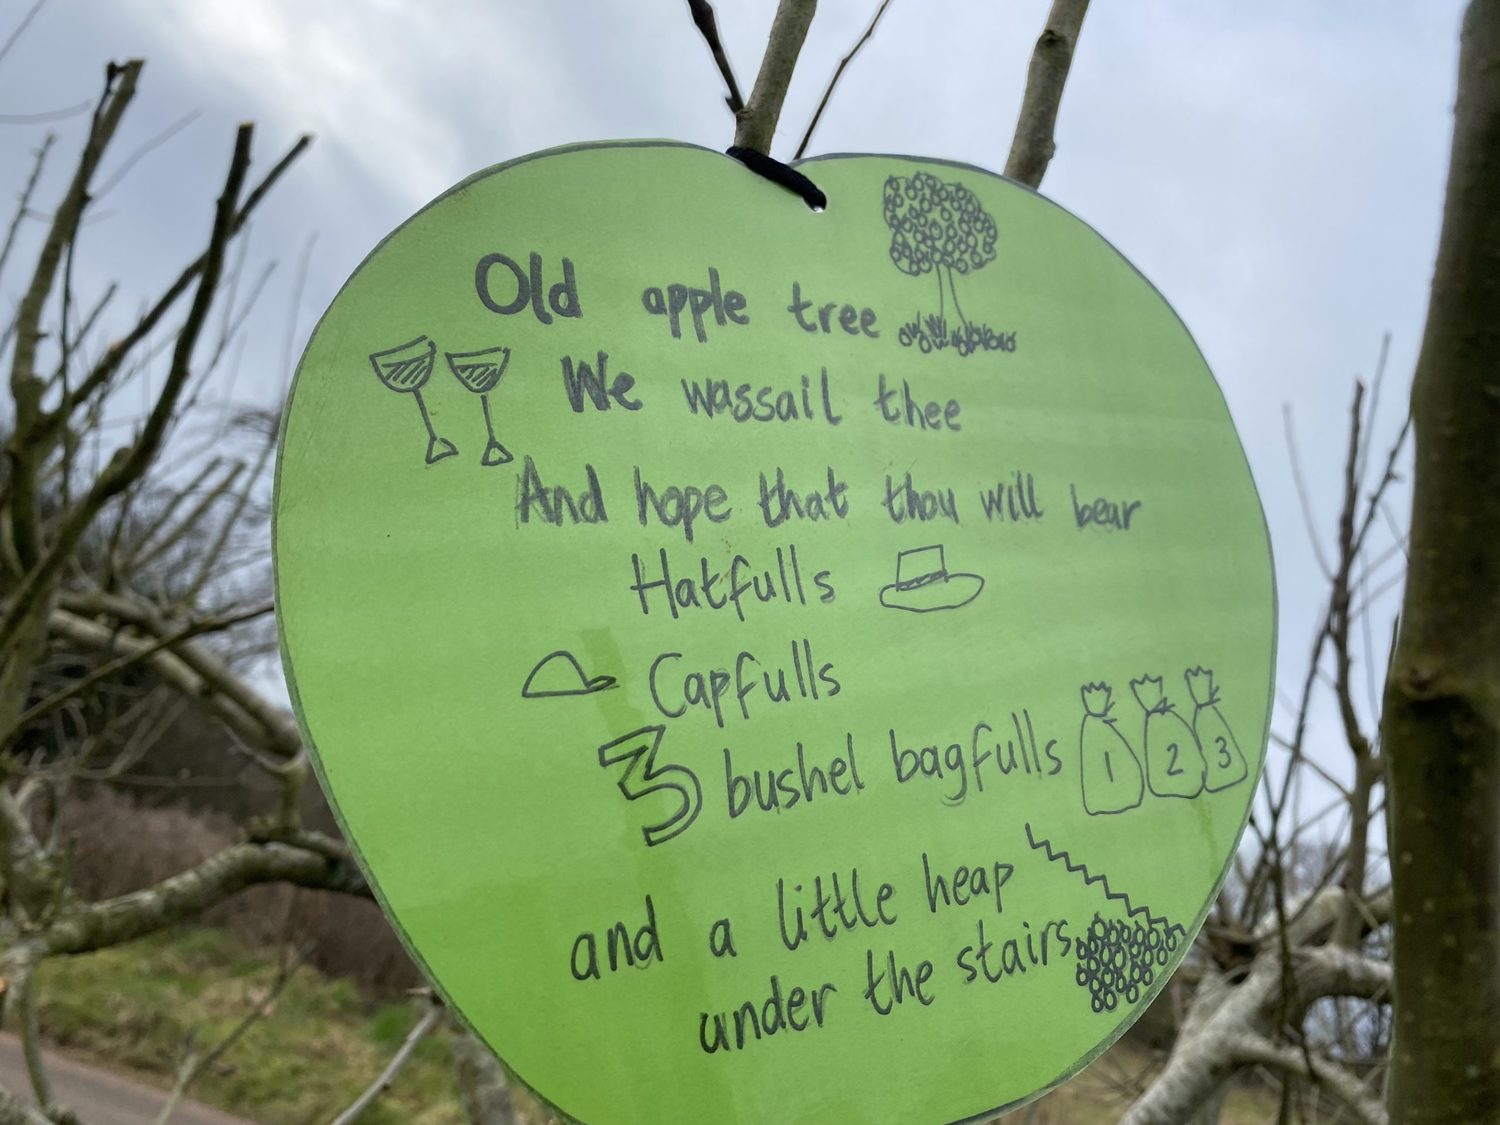 Old apple tree
We wassail thee
And hope that thou will bear
Hatfulls
Capfulls
3 bushel bagfulls 1 2 3
and a little heap
under the stairs